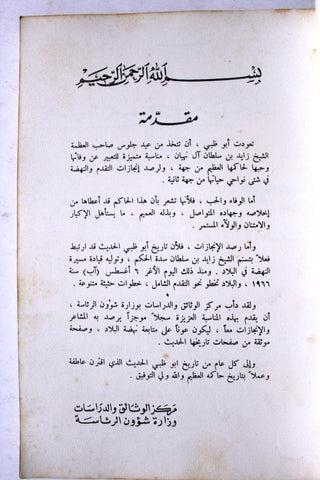 بسم الله الرحمن الرحيم
مقدمة
تعودت أبو ظبي ، أن تتخذ من عيد جلوس صاحب العظمة
الشيخ زايد بن سلطان آل نهيان ، مناسبة متميزة للتعبير عن وفائها
وحبها لحاكمها العظيم من جهة ، ولرصد إنجازات التقدم والنهضة
في شتى نواحي حياتها من جهة ثانية .
أما الوفاء والحب ، فلأنها تشعر بأن هذا الحاكم قد أعطاها من
إخلاصه وجهاده المتواصل ، وبذله العميم ، ما يستأهل الإكبار
والامتنان والولاء المستمر .
وأما رصد الإنجازات ، فلأن تاريخ أبو ظبي الحديث قد ارتبط
فعلاً بتسنم الشيخ زايد بن سلطان سدة الحكم ، وتوليه قيادة مسيرة
النهضة في البلاد . ومنذ ذلك اليوم الأغر ٦ أغسطس (آب) سنة
١٩٦٦ ، والبلاد تخطو نحو التقدم الشامل ، خطوات حثيثة متنوعة .
ولقد دأب مركز الوثائق والدراسات بوزارة شؤون الرئاسة ،
أن يقدم بهذه المناسبة العزيزة سجلاً موجزاً يرصد به المشاعر
والإنجازات معاً ، ليكون عوناً على متابعة نهضة البلاد ، وصفحة
موثقة من صفحات تاريخها الحديث .
وإلى كل عام من تاريخ ابو ظبي الحديث الذي اقترن عاطفة
وعملاً بتاريخ حاكمه العظيم والله ولي التوفيق .
مركز الوثائق والدراسات
وزارة شؤون الرئاسة